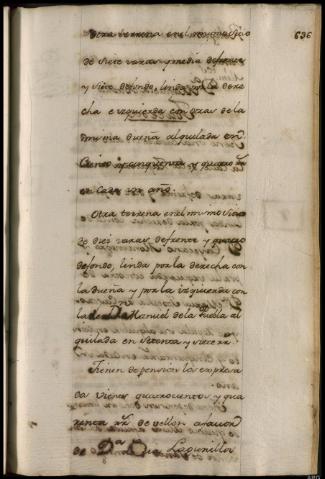 636
Otra terrena en el mismo sitio
de siete varas y media de frente
y siete de fondo, linda por la dere
cha e izquierda con otras de la
misma dueña alquilada en
Ciento y cinquenta y quatro rs
en Cada un año.
Otra terrena en el mismo sitio
de diez varas de frente y quatro
de fondo, linda por la derecha con
la dueña y por la izquierda con
la de Dn Manuel de la Puebla al
quilada en Setenta y siete rs
Tienen de pension las empresa
das vienes quatrocientos y qua
renta rs de vellon a favor
de Da Lagunilla